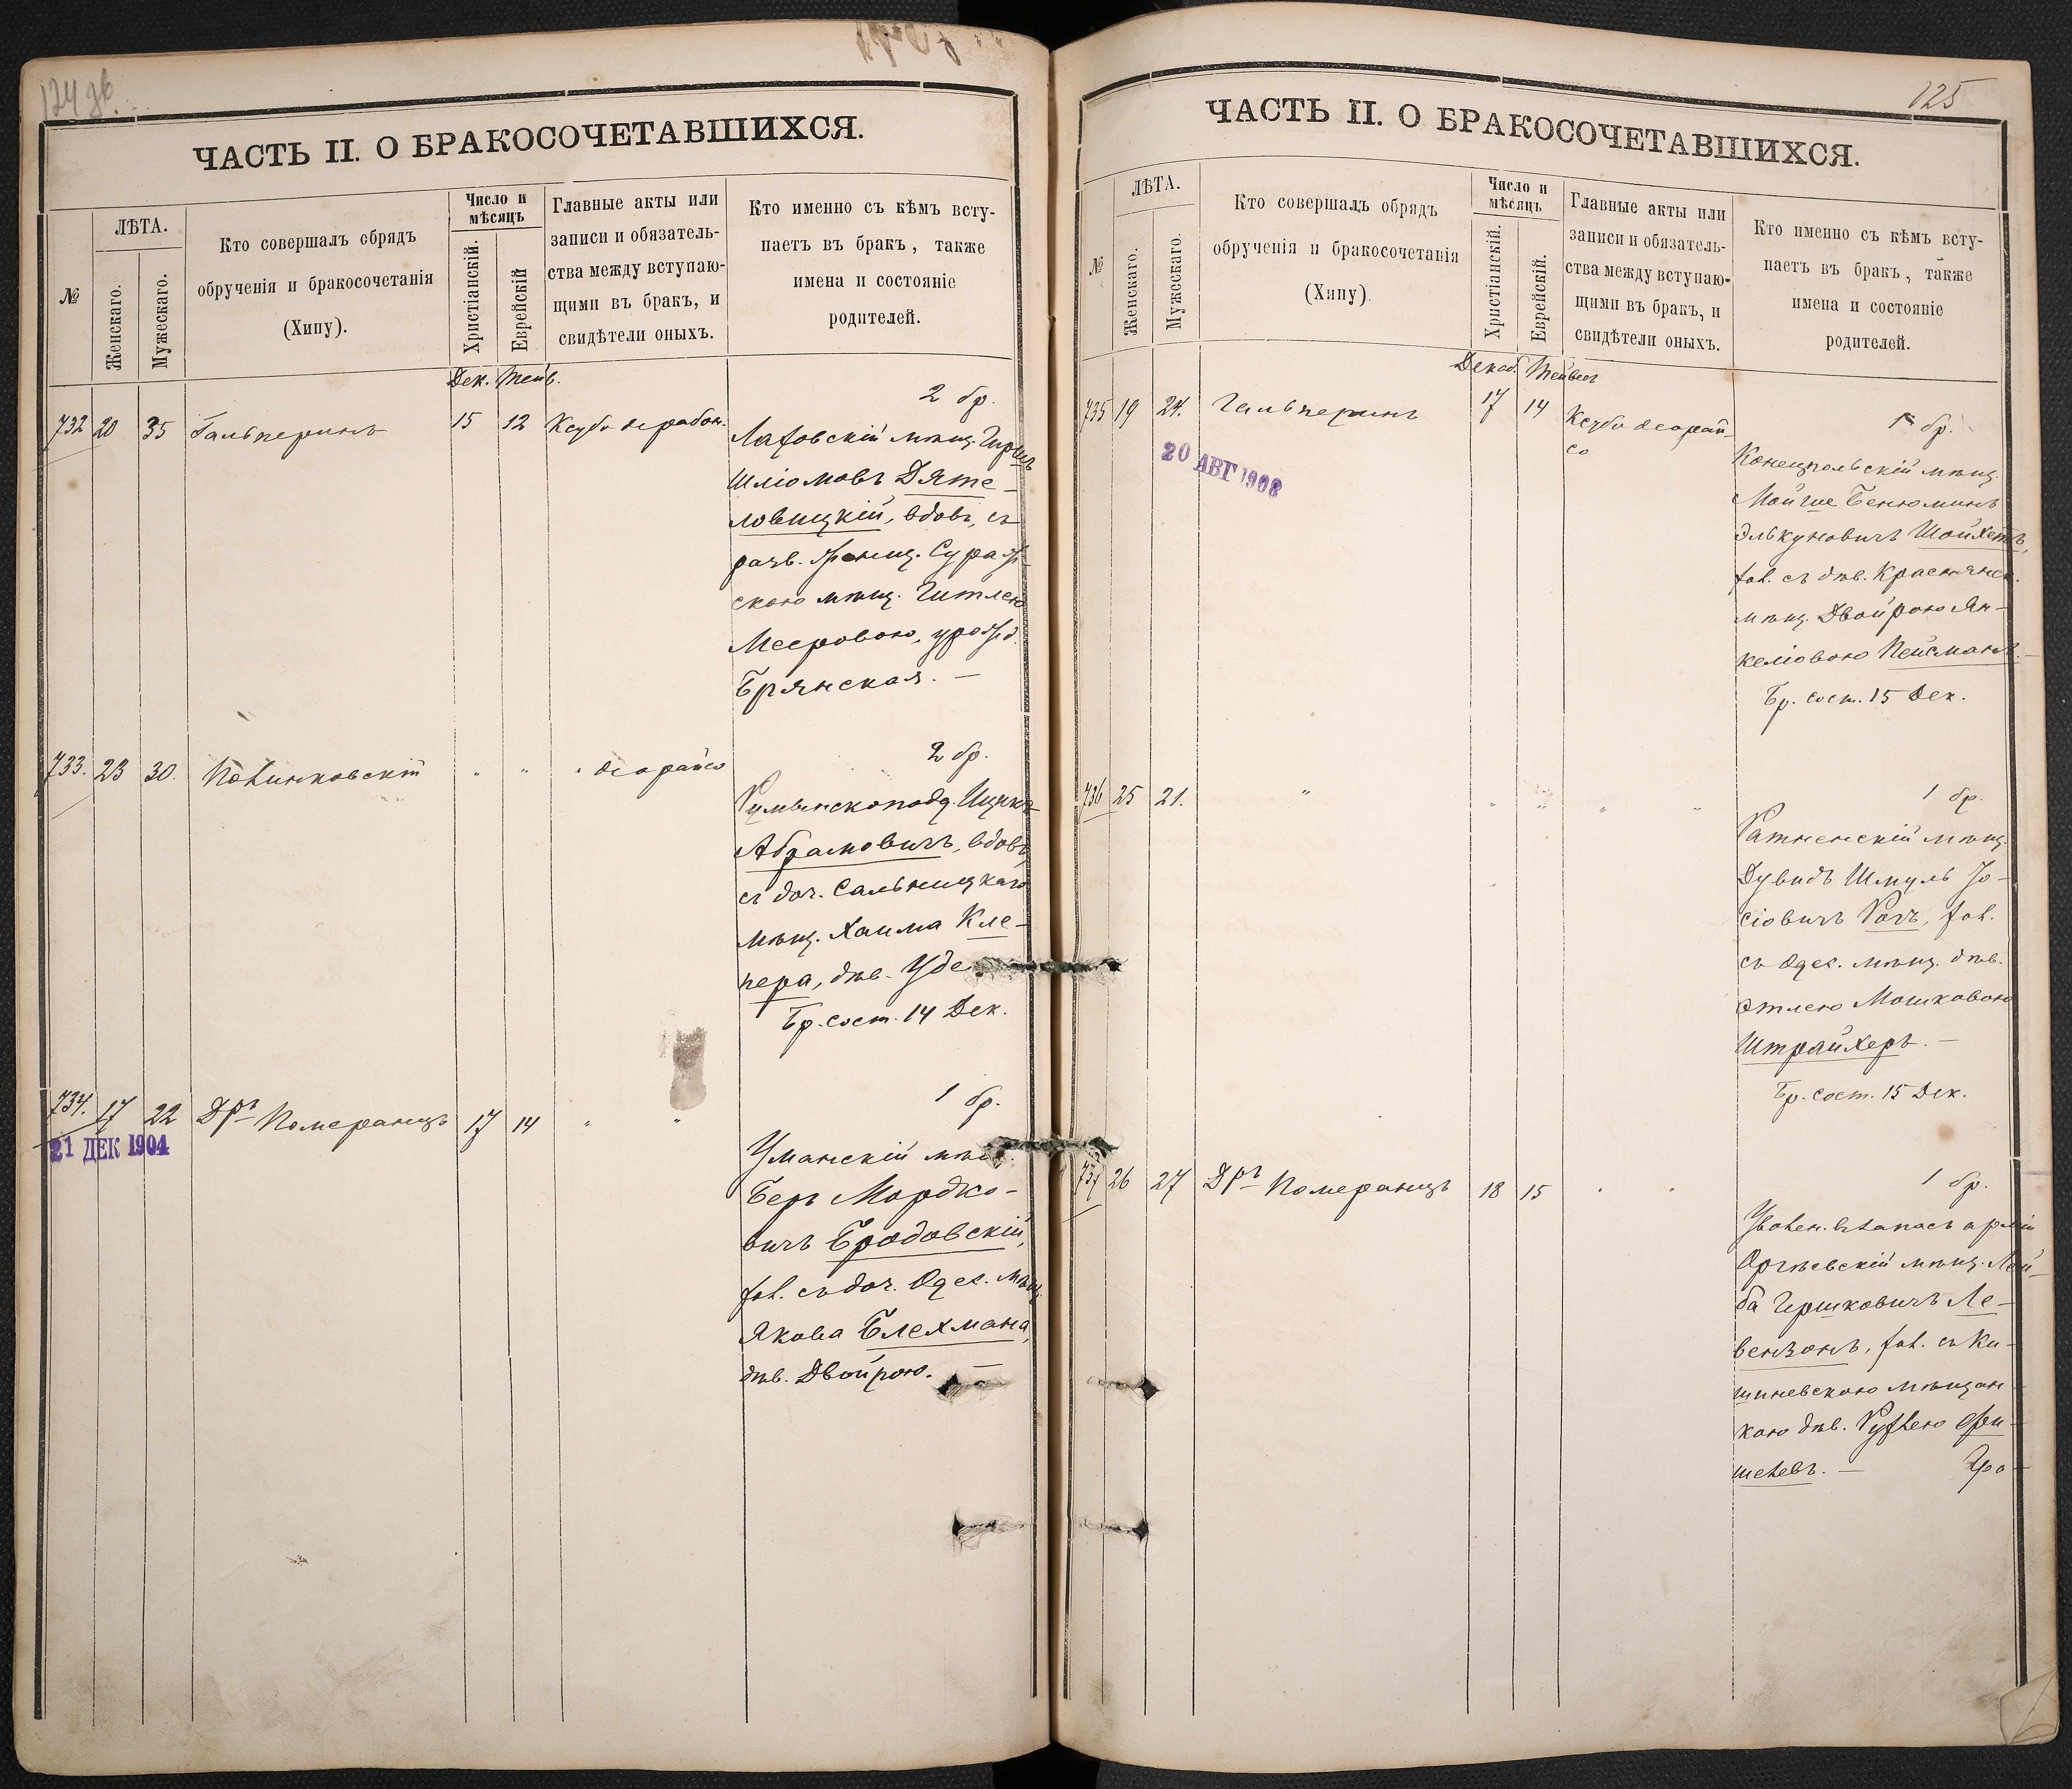 124 об.
ЧАСТЬ II. О БРАКОСОЧЕТАВШИХСЯ.
№
ЛѢТА.
Женскаго.
Мужескаго.
Кто совершалъ обрядъ
обрученія и бракосочетанія
(Хипу).
Число и
мѣсяцъ
Христіанскій.
Еврейскій
Главные акты или
записи и обязатель-
ства между вступаю-
щими въ бракъ, и
свидѣтели оныхъ.
Кто именно съ кѣмъ всту-
паетъ въ бракъ, также
имена и состояніе
родителей.
Дек. Тейв.
2 бр.
732 20 35 Гальперинъ 15 12 Ксубо дерабон.
мѣщ. Гиршъ
Шліомовъ Дяте-
ловицкій, вдов, съ
разв. женщ. Сураж-
скою мѣщ. Гитлею
Мееровою, урожд.
Брянская. —
2 бр.
733. 23 30. Полинковскій " " " деорайсо
Румынскоподд. Ицикъ
Абрамовичъ, вдов,
съ доч. Сальницкаго
мѣщ. Хаима Кле-
пера, дѣв. Уде
Бр. сост. 14 Дек.
1 бр.
734. 17 22 Дръ Померанцъ 17 14 " "
21 ДЕК 1904
Уманскій мѣщ.
Беръ Мордко-
вичъ Бродовскій,
хол. съ доч. Одес. мѣщ.
Якова Блехмана,
дѣв. Двойрою. —
125
ЧАСТЬ II. О БРАКОСОЧЕТАВШИХСЯ.
№
ЛѢТА.
Женскаго.
Мужескаго.
Кто совершалъ обрядъ
обрученія и бракосочетанія
(Хипу).
Число и
мѣсяцъ
Христіанскій.
Еврейскій.
Главные акты или
записи и обязатель-
ства между вступаю-
щими въ бракъ, и
свидѣтели оныхъ.
Кто именно съ кѣмъ всту-
паетъ въ бракъ, также
имена и состояніе
родителей.
Декаб. Тейвес
735 19 24. Гальперинъ 17 14 Ксубо деорай-
со
20 АВГ 1908
1 бр.
Конецпольскій мѣщ.
Мойше Бенюминъ
Элькуновичъ Шойхетъ,
хол. съ дѣв. Краснянск.
мѣщ. Двойрою Ян-
келіовою Пейсманъ. —
Бр. сост. 15 Дек.
736 25 21. " " " " "
1 бр.
Ратненскій мѣщ.
Дувидъ Шмуль Іо-
сіовичъ Ротъ, хол.
съ Одес. мѣщ. дѣв.
Этлею Мошковою
Штрайхеръ. —
Бр. сост. 15 Дек.
737 26 27 Дръ Померанцъ 18 15 " "
1 бр.
Уволен. въ запасъ арміи
Оргѣевскій мѣщ. Лей-
ба Гершковичъ Ле-
вензонъ, хол. съ Ки-
шиневскою мѣщан-
кою дѣв. Рухлею
шелевъ. —